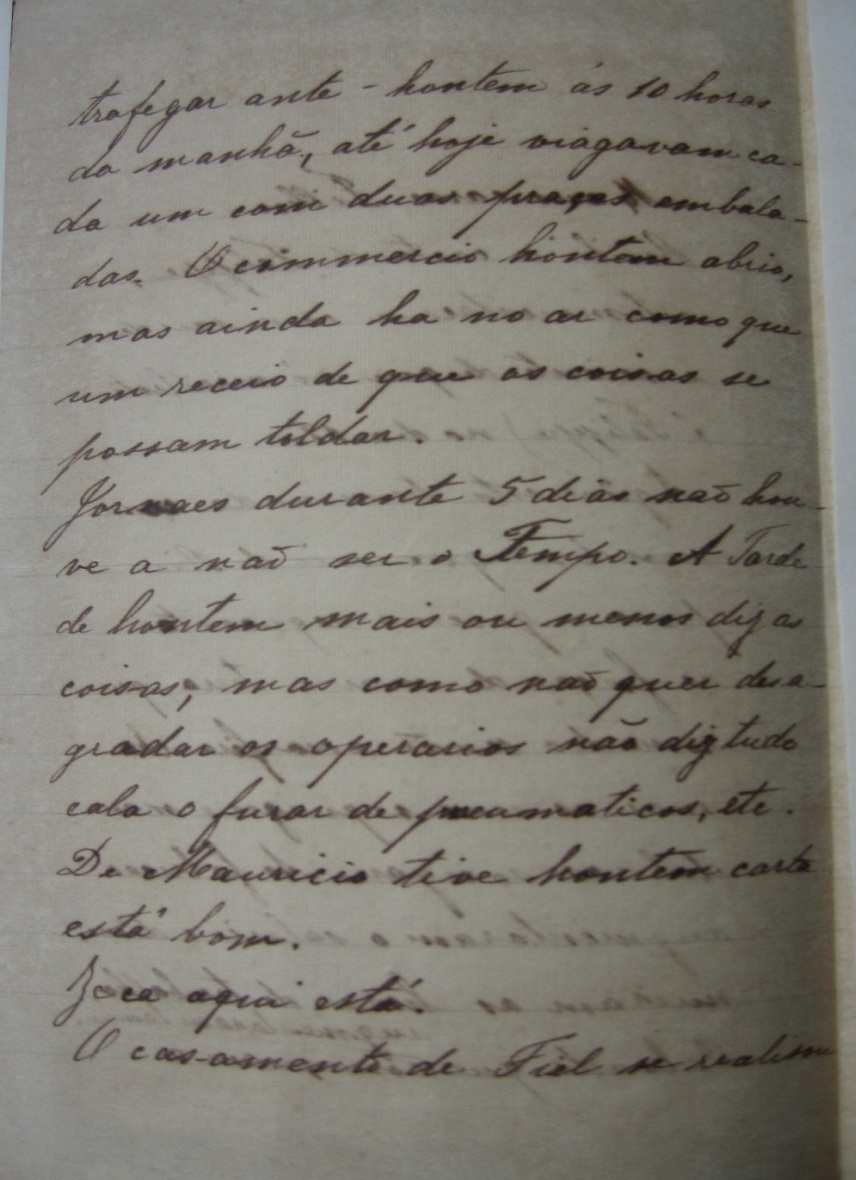 trafegar ante-hontem ás 10 horas
da manhã, até hoje viagavam ca-
da um com duas praças embala-
das. O commercio hontem abrio,
mas ainda ha no ar como que
um receio de que as coisas se
possam toldar.
Jornaes durante 5 dias não hou-
ve a não ser o Tempo. A Tarde
de hontem mais ou menos diz as
coisas, mas como não quer desa-
gradar os operarios não diz tudo
cala o furar de pneumaticos, etc.
De Mauricio tive hontem carta
está bom.
Zeca aqui está.
O casamento de Fiel se realisou